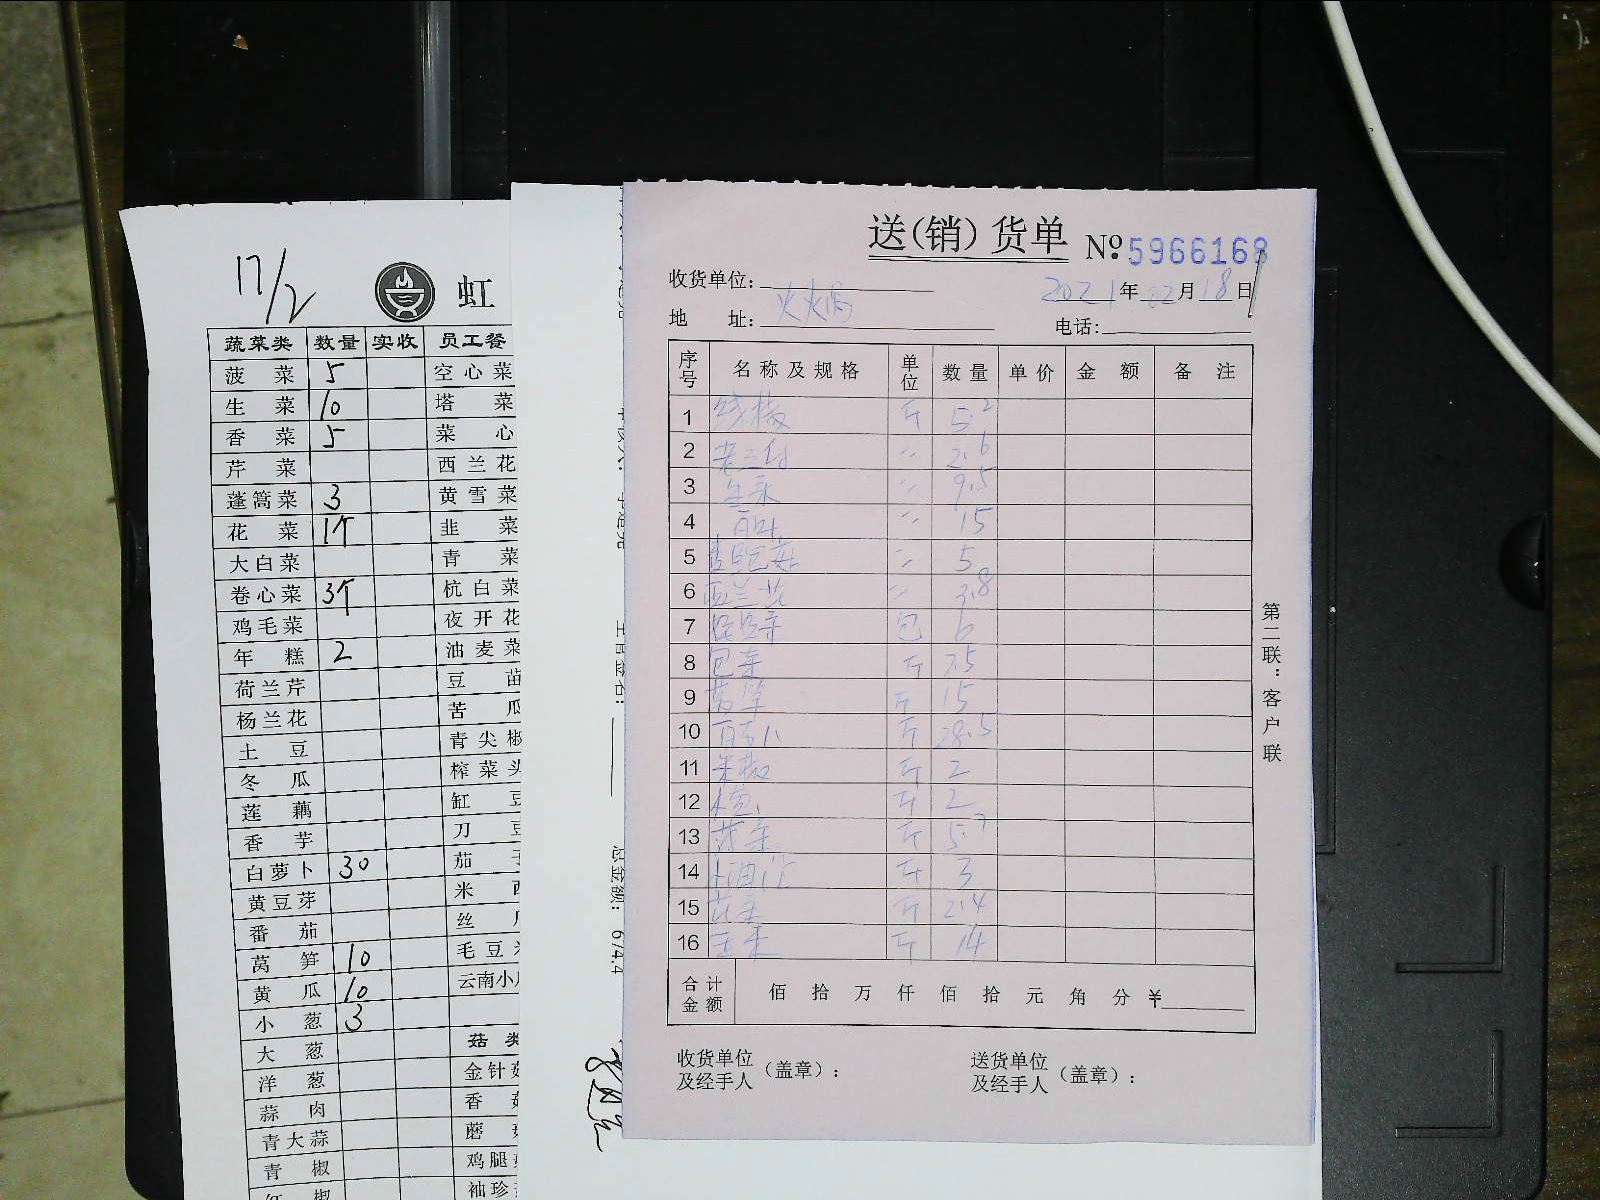 17/2
虹
蔬菜类 数量 实收 员工餐
菠菜 5 空心菜
生菜 10 塔菜
香菜 5 菜心
芹菜 西兰花
蓬篙菜 3 黄雪菜
花菜 1个 韭菜
大白菜 青菜
卷心菜 3个 杭白菜
鸡毛菜 夜开花
年糕 2 油麦菜
荷兰芹 豆苗
杨兰花 苦瓜
土豆 青尖椒
冬瓜 榨菜头
莲藕 缸豆
香芋 刀豆
白萝卜 30 茄
黄豆芽 米
番茄 丝
莴笋 10 毛豆
黄瓜 10 云南小
小葱 3
大葱 菇类
洋葱 金针菇
蒜肉 香菇
青大蒜 蘑
青椒 鸡腿
椒 袖珍
总金额: 674.4
送(销)货单 Nº 5966168
收货单位:
2021年02月18日
地址: 火火锅
电话:
序号 名称及规格 单位 数量 单价 金额 备注
1 线椒 斤 5.2
2 〃 2.6
3 生菜 〃 9.5
4 百叶 〃 15
5 〃 5
6 西兰花 〃 3.8
7 包 6
8 包菜 斤 7.5
9 莴笋 斤 15
10 斤 28.5
11 米椒 斤 2
12 斤 2
13 斤 5.7
14 斤 3
15 斤 2.4
16 斤 14
合计金额 佰拾万仟佰拾元角分¥
收货单位及经手人(盖章):
送货单位及经手人(盖章):
第二联:客户联